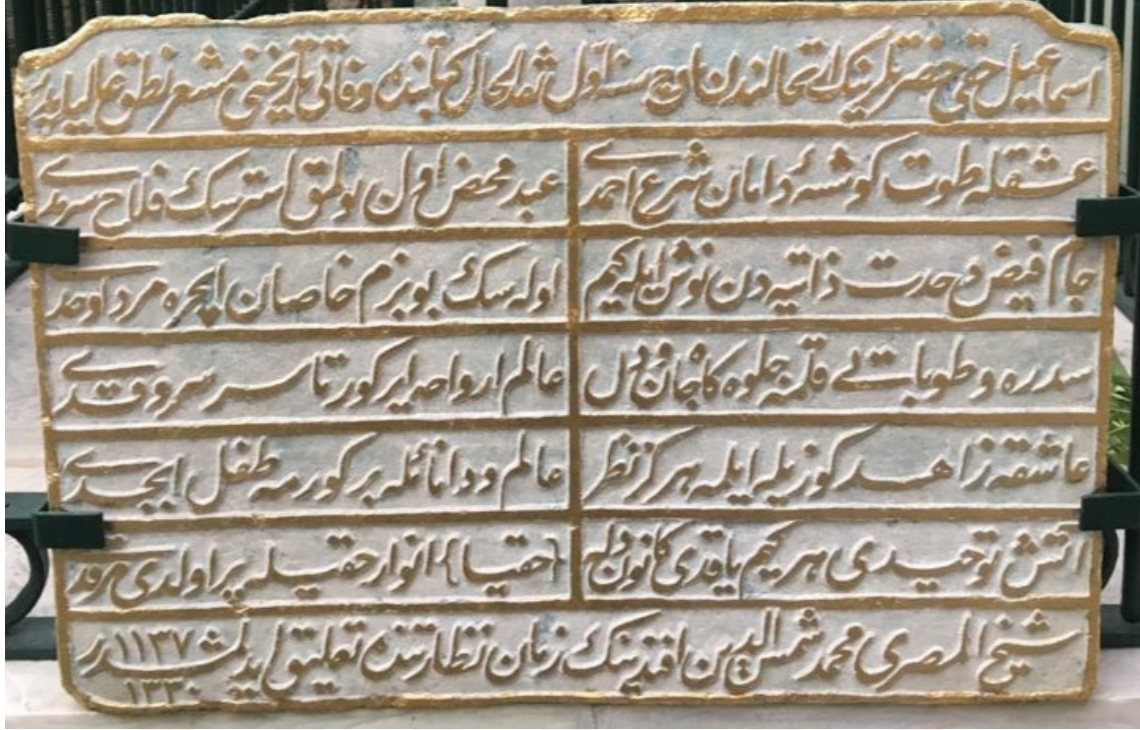 اسماعیل حقی حضرتلرینك ارتحالندن اوچ سنه اول شد الحال کتابنده وفاتی تاریخنی مشعر نطق عالیلریدر
عشقله طوت کوشهٔ دامان شرع احمدی عبد محض اول بولمق استرسك فلاح سرمدی
جام فیض وحدت ذاتیه دن نوش ایله کیم اوله سك بو بزم خاصان ایچره مرد اوحدی
سدره و طوبایه باقمه جلوه کاه جان و دل عالم ارواحه ایرکور تا سر سرو قدی
عاشقه زاهد کوزیله ایلمه هرکز نظر عالم و دانائله بر کورمه طفل ابجدی
آتش توحیدی هر کیم یاقدی کانون دله (حقیا) انوار حقیله پر اولدی مرقدی
شیخ المصری محمد شمس الدین افندینك زمان نظارتنده تعلیق ایدلمشدر ١١٣٧
١٣٣٠